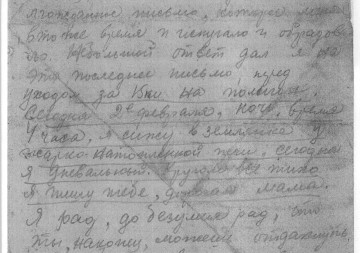 лгожданное письмо, которое меня
в то же время и испугало и обрадов
ло. Небольшой ответ дал я на
это последнее письмо, перед
уходом за 15км на полигон.
Сегодня 2е февраля, ночь, время
4 часа. Я сижу в землянке у
жарко натопленной печи, сегодня
я дневальный. Кругом все тихо
и пишу тебе, дорогая мама.
Я рад, до безумия рад, что
ты, наконец, можешь отдохнуть,